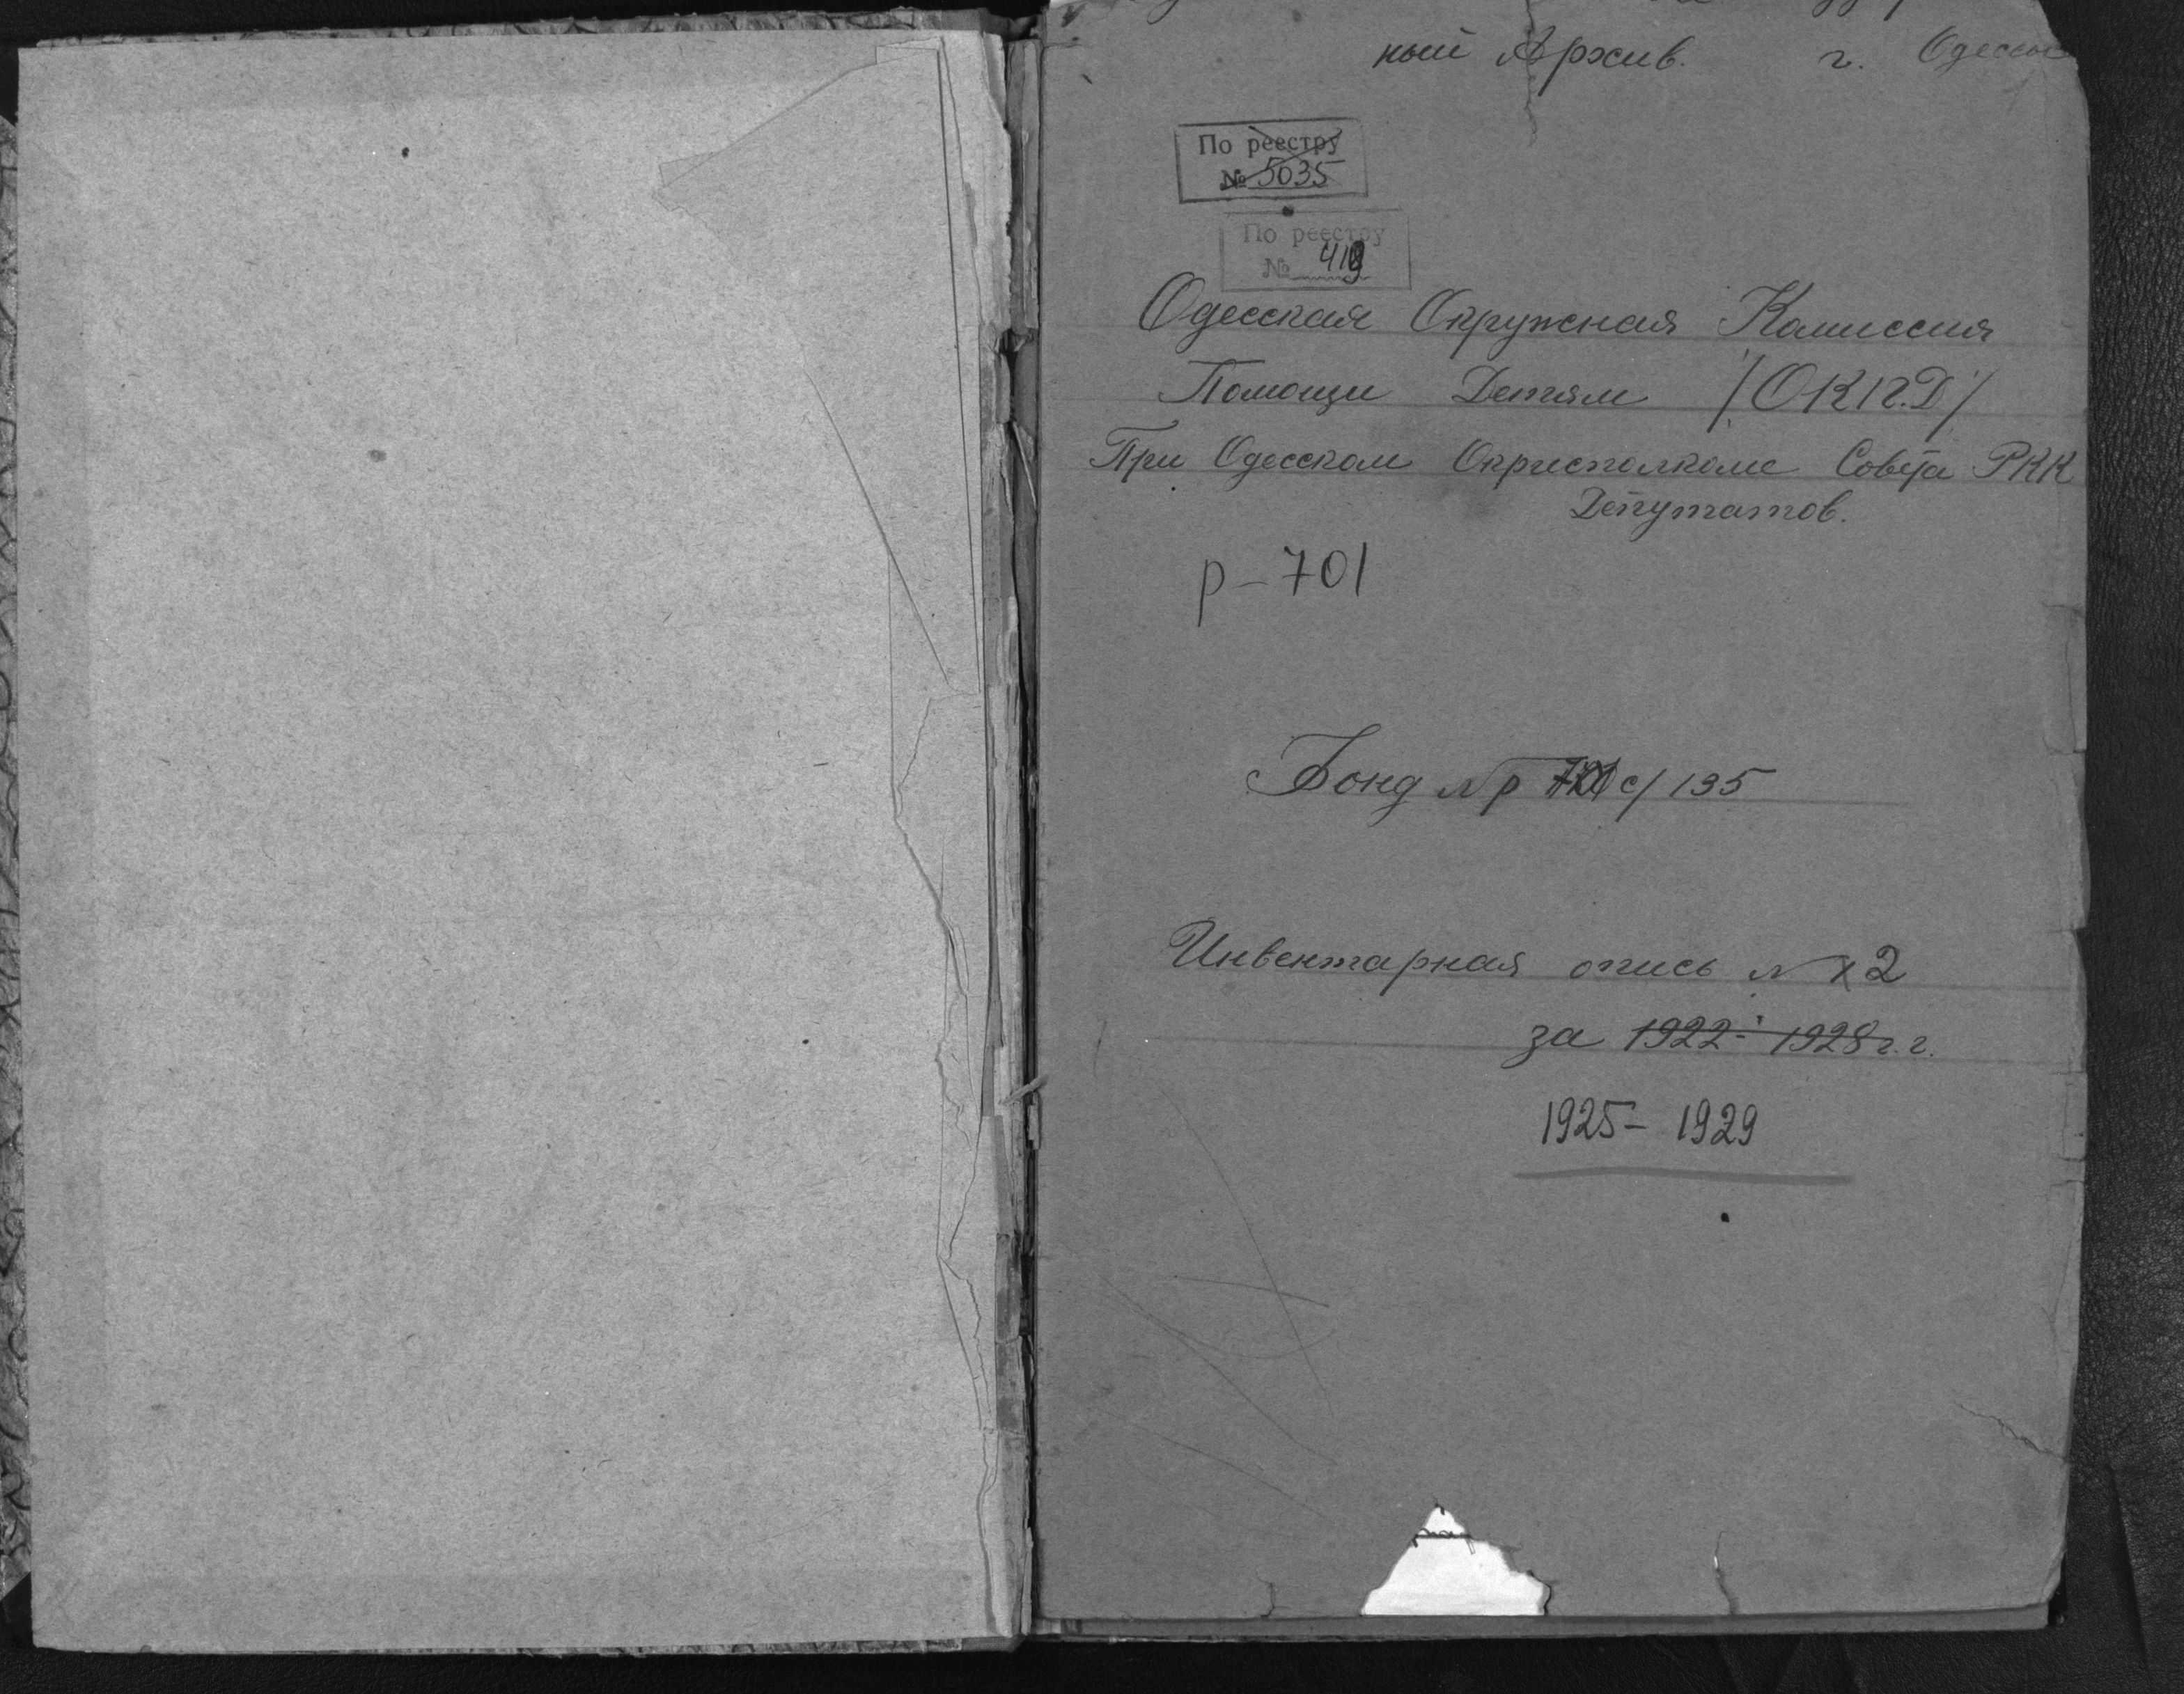 ный Архив. г. Одессы
По реестру
№ 5035
По реестру
№ 419
Одесская Окружная Комиссия
Помощи Детям /ОКП.Д/
При Одесском Окрисполкоме Совета РКК
Депутатов.
р-701
Фонд № р с/135
Инвентарная опись № 2
за 1922-1928 г.г.
1925-1929